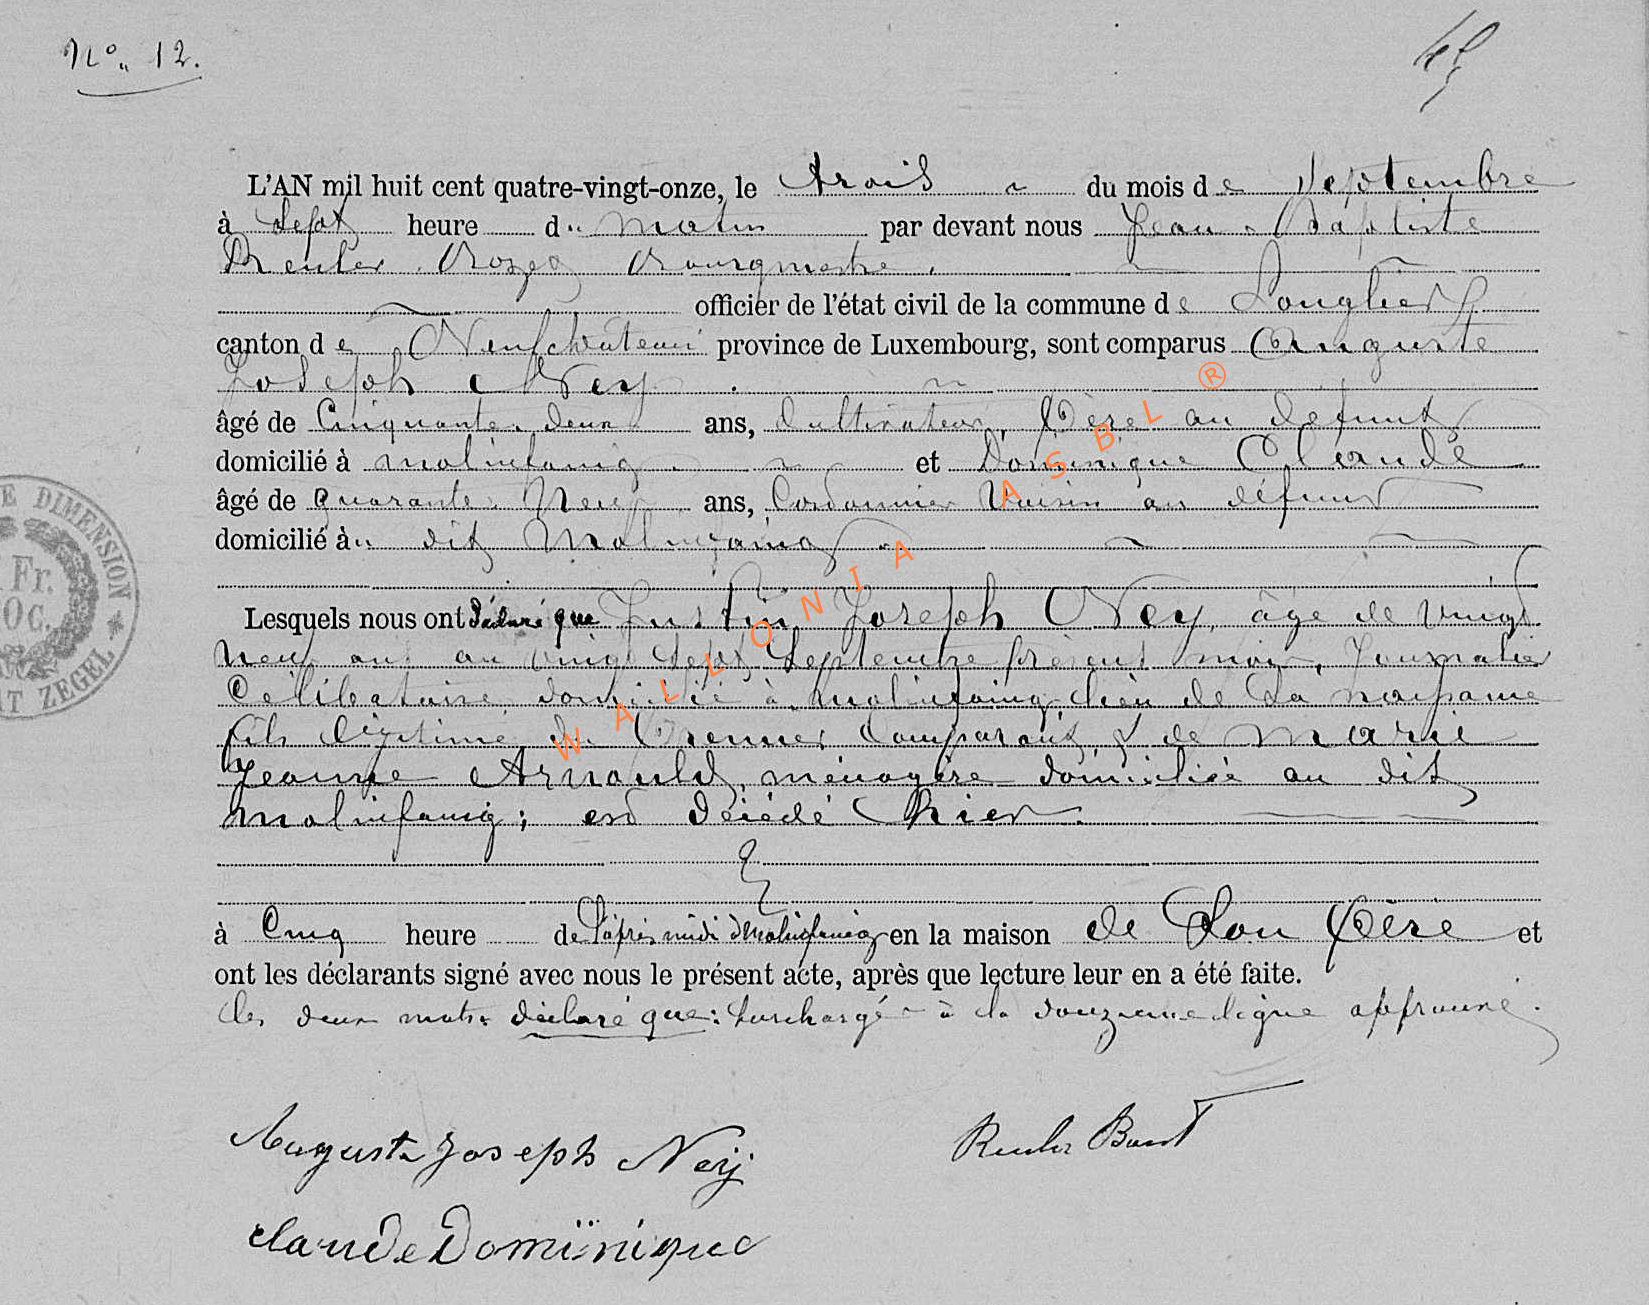 No. 12.
45
L'AN mil huit cent quatre-vingt-onze, le trois du mois de Septembre
à Sept heure du matin par devant nous Jean-Baptiste
Reuler Bourgmestre.
officier de l'état civil de la commune de Longlier
canton de Neufchâteau province de Luxembourg, sont comparus Auguste
Joseph Ney
âgé de Cinquante-deux ans, Cultivateur, Père au défunt
domicilié à Molinfaing et Dominique Claude
âgé de quarante-Neuf ans, Cordonnier Voisin au défunt
domicilié à dit Molinfaing
Lesquels nous ont déclaré que Justin Joseph Ney, âgé de Vingt
Neuf ans au Vingt Sept Septembre présent mois, Journalier
Célibataire, domicilié à Molinfaing lieu de Sa naissance
fils légitime du Premier Comparant, & de Marie
Jeanne Arnould, ménagère domiciliée au dit
Molinfaing; est décédé hier
à Cinq heure de l'après-midi à Molinfaing en la maison de Son Père et
ont les déclarants signé avec nous le présent acte, après que lecture leur en a été faite.
Les deux mots: déclaré que: Surchargé à la douzième ligne approuvé.
Auguste Joseph Neÿ
Claude Dominique
WALLONIA ASBL ®
E DIMENSION
Fr.
OC.
T ZEGEL